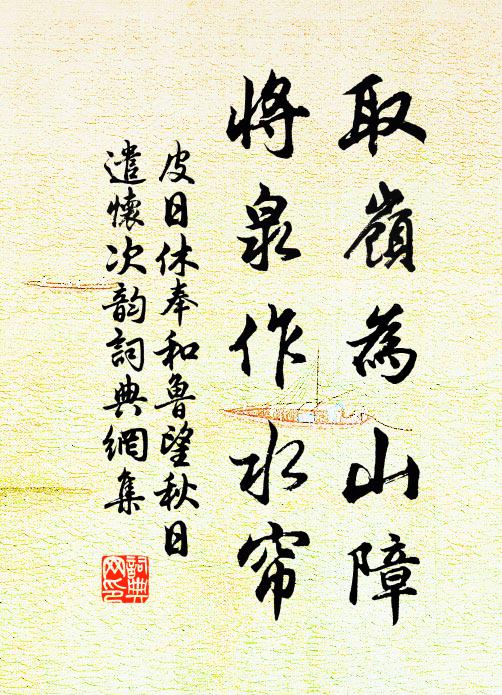 取嶺為山障
將泉作水帘
皮日休奉和魯望秋日
遣懷次韵詞典網集
詞典網印